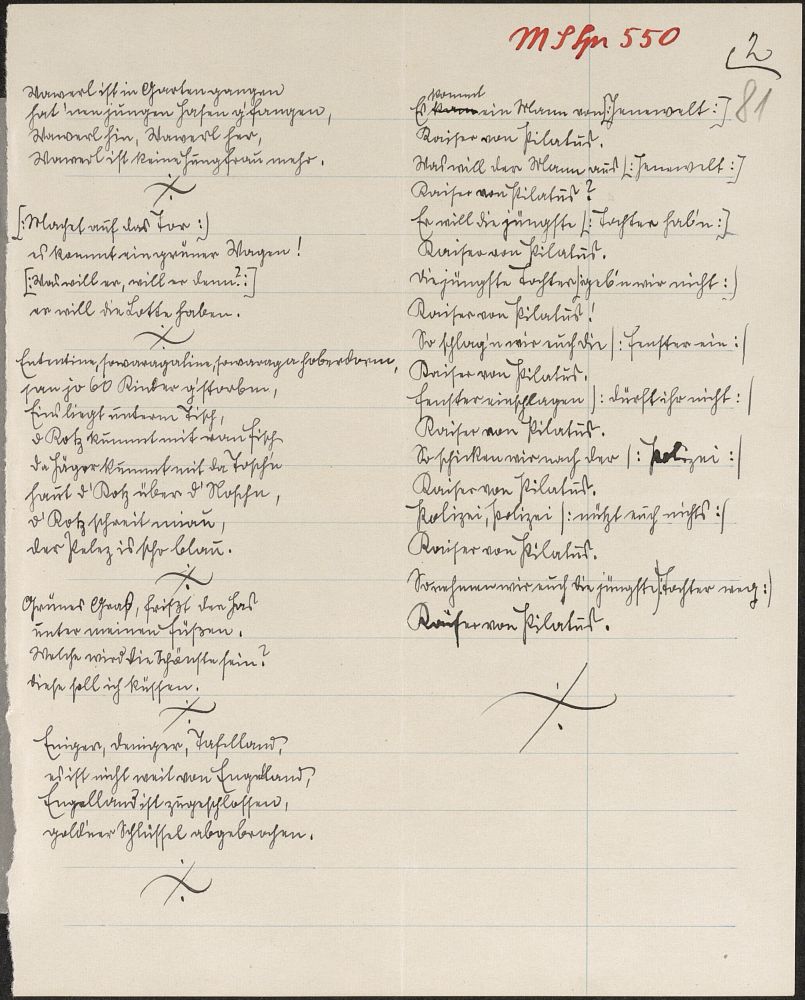 MS Spr 550
2
81
Wawerl ist in Garten gangen
hat 'nen jungen Hasen g'fangen,
Wawerl hin, Wawerl her,
Wawerl ist keine Jungfrau mehr.
[: Machet auf das Tor :]
es kommt ein grüner Wagen!
[: Was will er, will er denn? :]
er will die Lotte haben.
san jo 60 Kinder g'storben,
Eins liegt unterm Tisch,
d Kotz kummt mit ran Fisch
Da Jäger kummt mit da Tosch'n
haut d' Kotz über d' Noschn,
d' Kotz schreit miau,
der Pelez is scho blau.
Grünes Gras, frißt der Has
unter meinen Füßen.
Welche wird die Schönste sein?
diese soll ich küssen.
Eniger, deniger, Tafelland,
es ist nicht weit von Engelland,
Engelland ist zugeschlossen,
goldner Schlüssel abgebrochen.
kommt
Es kam ein Mann von [: Jenewelt :]
Kaiser von Pilatus.
Was will der Mann aus [: Jenewelt :]
Kaiser von Pilatus?
Er will die jüngste [: Tochter hab'n :]
Kaiser von Pilatus.
die jüngste Tochter [: geb'n wir nicht :]
Kaiser von Pilatus!
So schlag'n wir euch die [: Fenster ein :]
Kaiser von Pilatus.
Fenster einschlagen [: dürft ihr nicht :]
Kaiser von Pilatus.
So schicken wir nach der [: Polizei :]
Kaiser von Pilatus.
Polizei, Polizei [: nützt euch nichts :]
Kaiser von Pilatus.
So nehmen wir euch die jüngste [: Tochter weg :]
Kaiser von Pilatus.